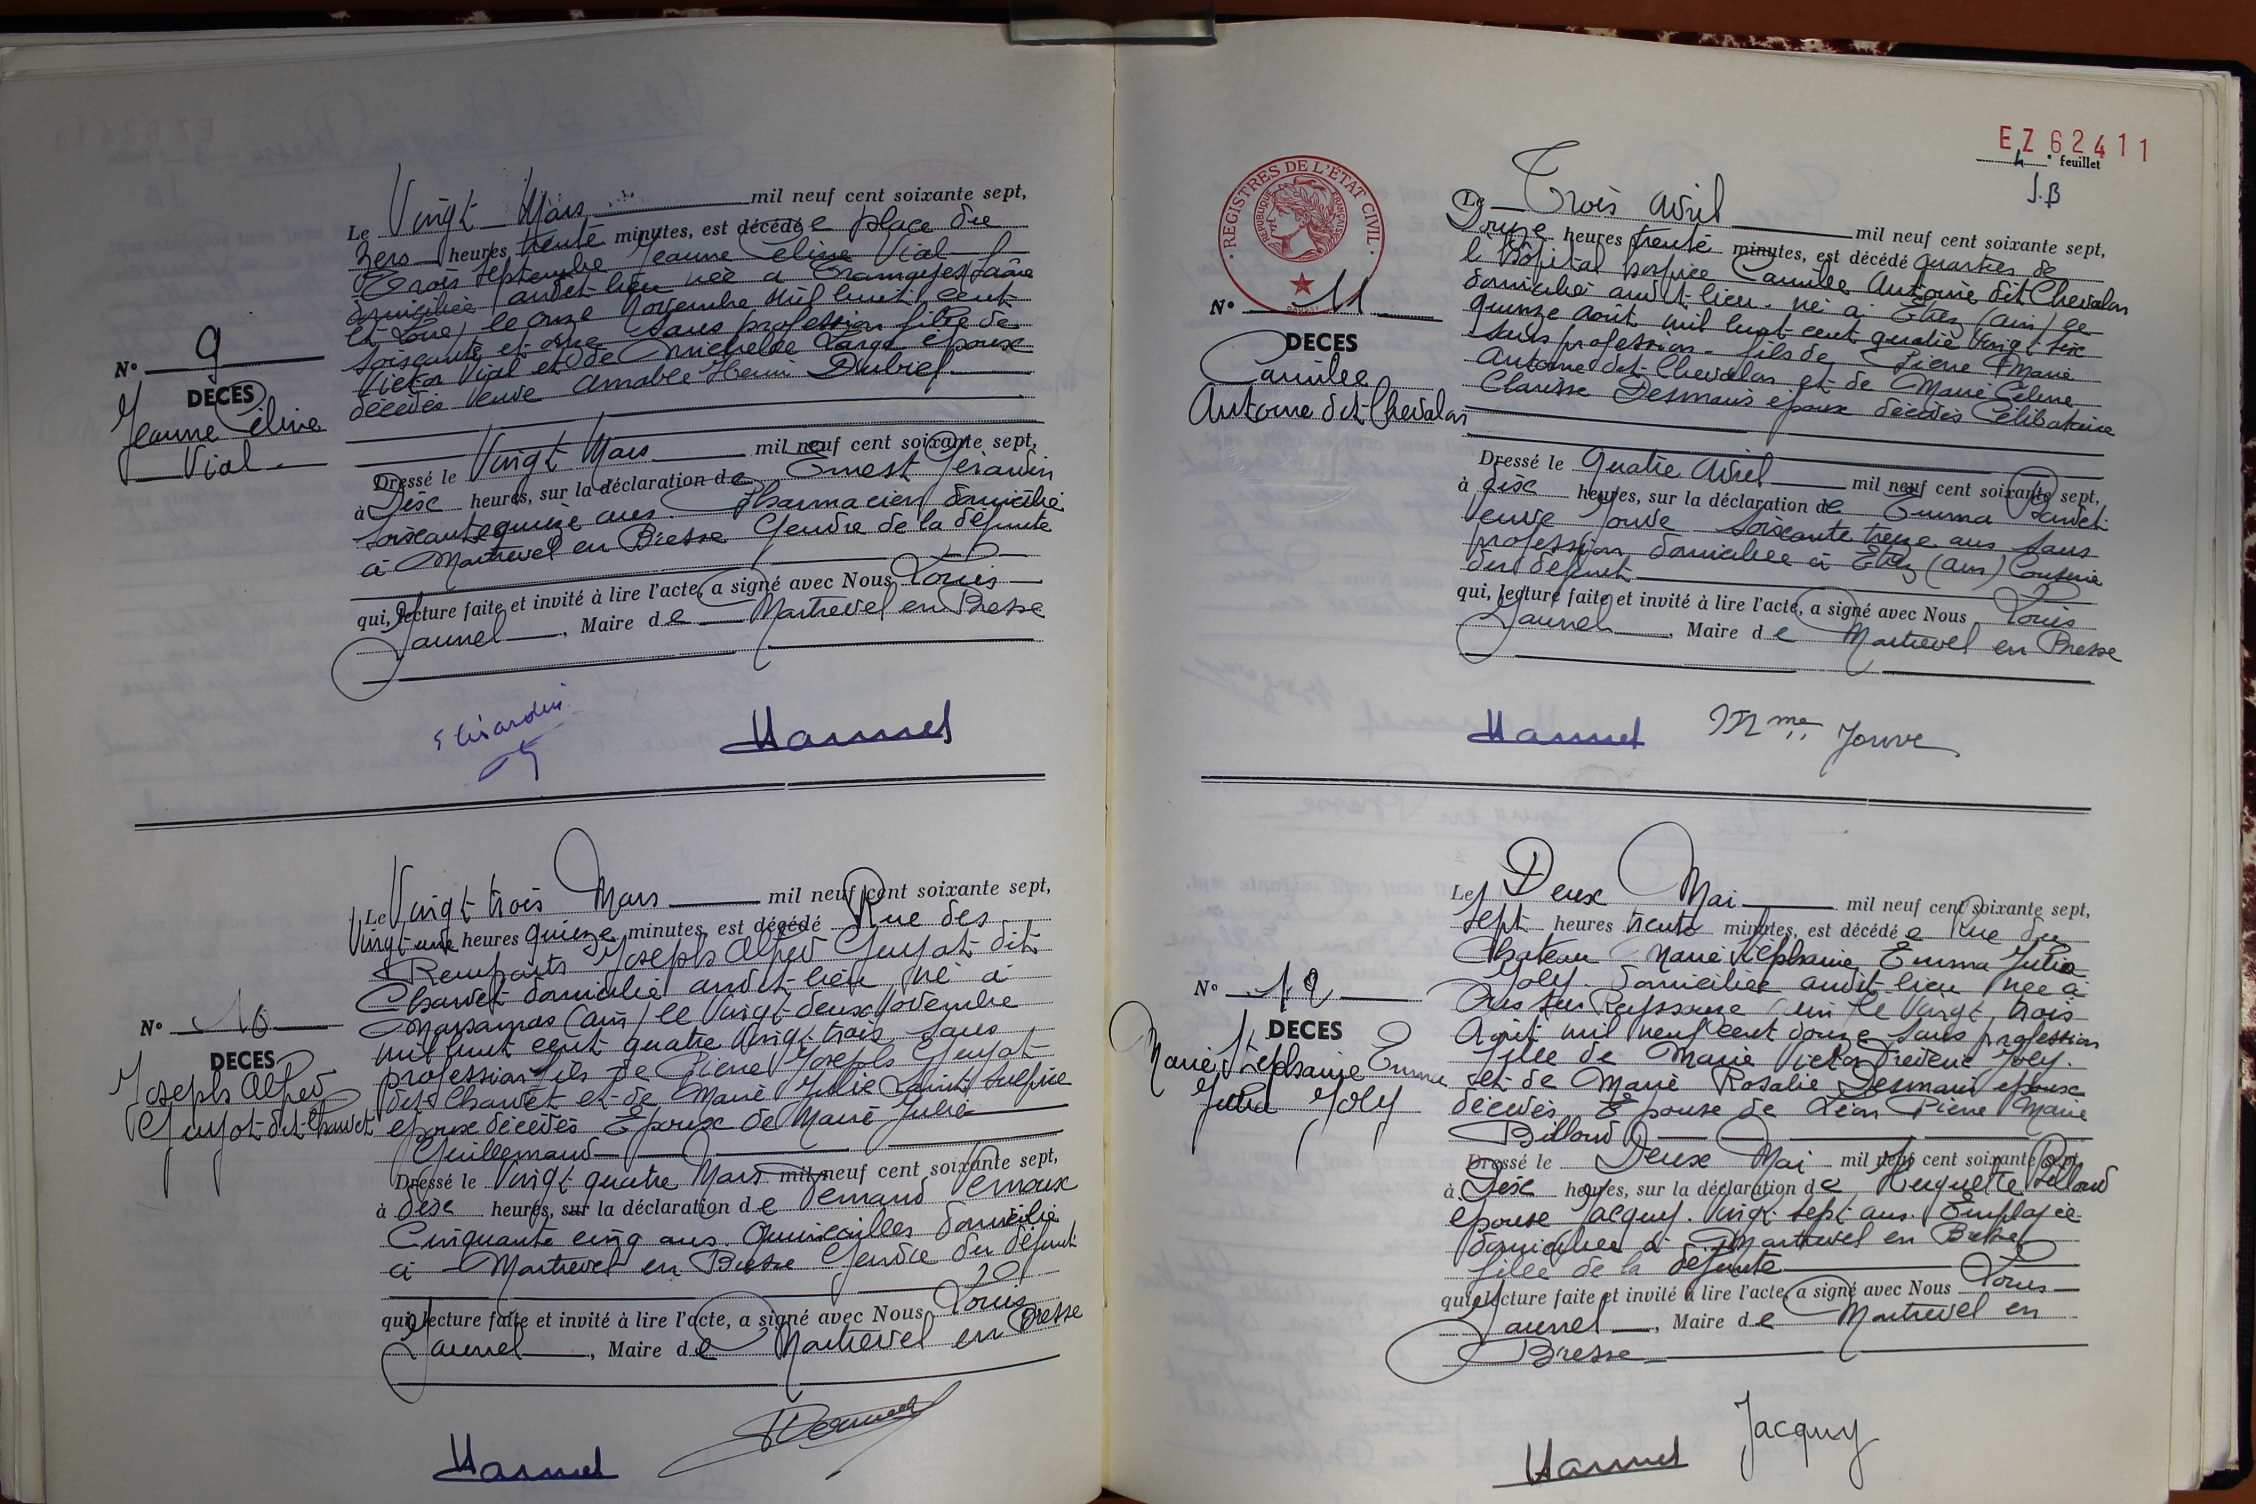 Le Vingt Mars mil neuf cent soixante sept,
Zero heures trente minutes, est décédée place du
Trois Septembre Jeanne Céline Vial
domiciliée audit-lieu née à Tramayes (Saône
et Loire) le onze Novembre mil huit cent
soixante et onze sans profession fille de
Victor Vial et de Michelle Large époux
décédés veuve Amable Henri Dubief
N° 9
DECES
Jeanne Céline
Vial
Dressé le Vingt Mars mil neuf cent soixante sept,
à Dix heures, sur la déclaration de Ernest Girardin
soixante quinze ans. Pharmacien domicilié
à Montrevel en Bresse Gendre de la défunte
qui, lecture faite et invité à lire l'acte, a signé avec Nous Louis
Jaunel, Maire de Montrevel en Bresse
E Girardin
Jaunel
Le Vingt trois Mars mil neuf cent soixante sept,
Vingt une heures quinze minutes, est décédé Rue des
Remparts Joseph Alfred Guyot dit
Chavet domicilié audit-lieu né à
Marsonnas (ain) le Vingt-deux Novembre
mil huit cent quatre vingt trois sans
profession fils de Pierre Joseph Guyot
dit Chavet et de Marie Julie Saint Sulpice
époux décédés Epoux de Marie Julie
Guillemaud
N° 10
DECES
Joseph Alfred
Guyot-dit-Chavet
Dressé le Vingt quatre Mars mil neuf cent soixante sept,
à dix heures, sur la déclaration de Fernand Vernoux
Cinquante cinq ans. Quincailler domicilié
à Montrevel en Bresse Gendre du défunt
qui lecture faite et invité à lire l'acte, a signé avec Nous Louis
Jaunel, Maire de Montrevel en Bresse
Jaunel
Vernoux
EZ 62411
4 e feuillet
J.B
REGISTRES DE L'ETAT CIVIL
REPUBLIQUE FRANÇAISE
Le Trois Avril mil neuf cent soixante sept,
Douze heures trente minutes, est décédé quartier de
l'hôpital hospice Camille Antoine dit Chevalon
domicilié audit-lieu. né à Etrez (ain) le
quinze août mil huit cent quatre vingt six
sans profession. fils de Pierre Marie
Antoine dit-Chevalon et de Marie Céline
Clarisse Desmaris époux décédés Célibataire
N° 11
DECES
Camille
Antoine dit-Chevalon
Dressé le Quatre Avril mil neuf cent soixante sept,
à dix heures, sur la déclaration de Emma
Veuve Jouve soixante treize ans sans
profession domiciliée à Etrez (ain) Cousine
du défunt
qui, lecture faite et invité à lire l'acte, a signé avec Nous Louis
Jaunel, Maire de Montrevel en Bresse
Jaunel Mme Jouve
Le Deux Mai mil neuf cent soixante sept,
sept heures trente minutes, est décédée Rue du
Chateau Marie Stéphanie Emma Julia
Joly. domiciliée audit-lieu née à
sur Reyssouze (ain) le Vingt trois
Août mil neuf cent douze sans profession
fille de Marie Victor Frédéric Joly.
et de Marie Rosalie Desmaris époux
décédés Epouse de Léon Pierre Marie
Billoud
N° 12
DECES
Marie Stéphanie Emma
Julia Joly
Dressé le Deux Mai mil neuf cent soixante sept,
à Dix heures, sur la déclaration de Huguette Billoud
épouse Jacquy. Vingt sept ans. Employée
domiciliée à Montrevel en Bresse
fille de la défunte
qui lecture faite et invité à lire l'acte, a signé avec Nous Louis
Jaunel, Maire de Montrevel en
Bresse
Jaunel Jacquy